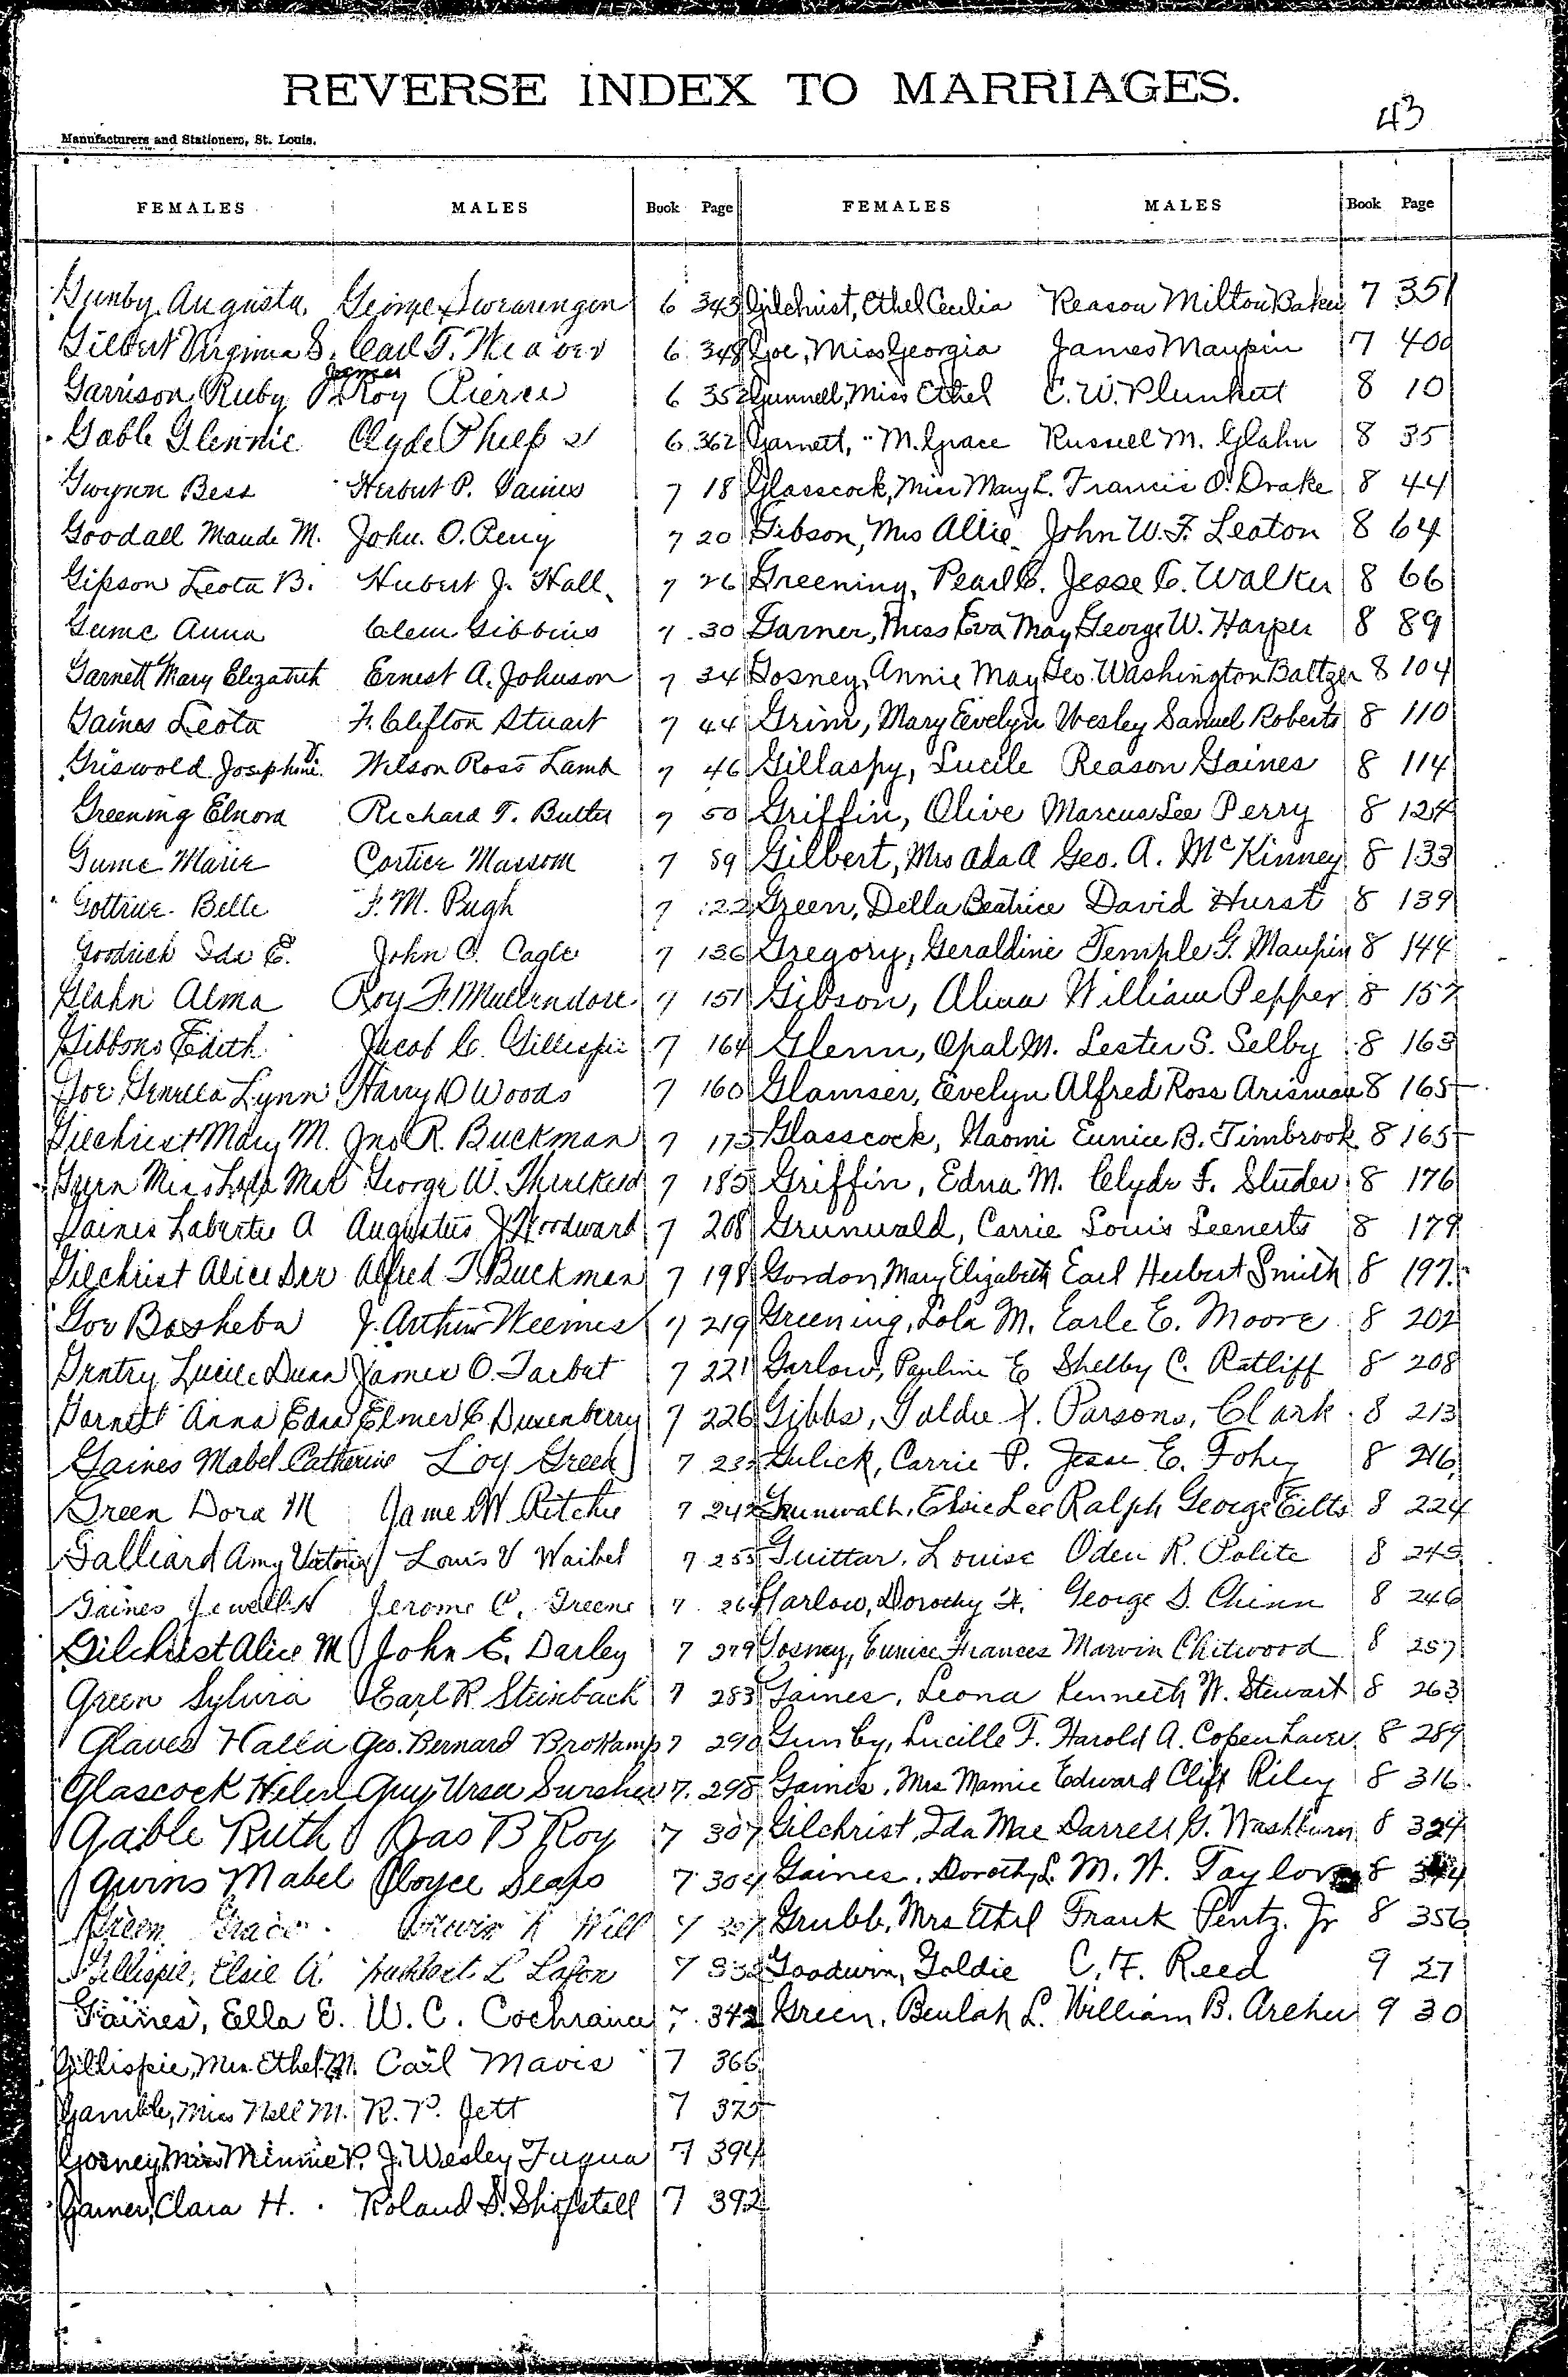 REVERSE INDEX TO MARRIAGES.
43
Manufacturers and Stationers, St. Louis.
FEMALES MALES Book Page FEMALES MALES Book Page
Gunby, Augusta, George Swearengen 6 343
Gilbert Virginia S. Carl T. Weaver 6 348
Garrison Ruby P. James Roy Pierce 6 352
Gable Glennie Clyde Phelps 6 362
Gwynn Bess Herbert P. 7 18
Goodall Maude M. John. O. Perry 7 20
Gipson Leota B. Hubert J. Hall 7 26
Anna Clem Gibbins 7 30
Garnett Mary Elizabeth Ernest A. Johnson 7 34
Gaines Leota F. Clifton Stuart 7 44
Griswold Josephine Wilson Ross Lamb 7 46
Greening Elnora Richard T. Butler 7 50
Marie Cortier Massom 7 59
Belle F. M. Pugh 7 122
Goodrich Ida E. John C. Cagle 7 136
Glahn Alma Roy F. Mullendore 7 151
Gibbons Edith Jacob C. Gillispie 7 164
Goe Lynn Harry D Woods 7 160
Gilchrist Mary M. Jno R. Buckman 7 175
Green Miss Mae George W. Threlkeld 7 185
Gaines A Augustus J Woodward 7 208
Gilchrist Alice Dee Alfred T. Buckman 7 198
Goe Basheba J. Arthur Weemes 7 219
Gentry Lucile Dunn James O. Tarbet 7 221
Garnett Anna Edna Elmer C. Dusenberry 7 226
Gaines Mabel Catherine Loy Green 7
Green Dora M James W Ritchie 7 242
Galliard Amy Victoria Louis V Waibel 7 255
Gaines Jewell N Jerome C. Greene 7 264
Gilchrist Alice M John E. Darley 7 279
Green Sylvia Earl R Steinback 7 283
Glaves Halla Geo. Bernard Brokamp 7 290
Glascock Helen Guy Ursa 7. 298
Gable Ruth Jas B Roy 7 307
Mabel Cloyce Seaps 7 304
Green Grace Will 7
Gillispie, Elsie A. L Lafon 7 332
Gaines, Ella E. W. C. Cochrane 7. 342
Gillispie, Mrs. Ethel M. Carl Mavis 7 366
Gamble, Miss Nell M. R. P. Jett 7 375
Gosney, Miss Minnie P. J. Wesley Fuqua 7 394
Garner, Clara H. Roland S. Shofstall 7 392
Gilchrist, Ethel Cecilia Reason Milton Baker 7 351
Goe, Miss Georgia James Maupin 7 400
Gunnell, Miss Ethel C. W. Plunkett 8 10
Garnett, " M. Grace Russell M. Glahn 8 35
Glasscock, Miss Mary L. Francis O. Drake 8 44
Gibson, Mrs Allie John W. F. Leaton 8 64
Greening, Pearl C. Jesse C. Walker 8 66
Garner, Miss Eva May George W. Harper 8 89
Gosney, Annie May Geo. Washington Baltzer 8 104
Grim, Mary Evelyn Wesley Samuel Roberts 8 110
Gillaspy, Lucile Reason Gaines 8 114
Griffin, Olive Marcus Lee Perry 8 124
Gilbert, Mrs Ada A Geo. A. McKinney 8 133
Green, Della Beatrice David Hurst 8 139
Gregory, Geraldine Temple G. Maupin 8 144
Gibson, Alma William Pepper 8 157
Glenn, Opal M. Lester S. Selby 8 163
Glamser, Evelyn Alfred Ross Arisman 8 165
Glasscock, Naomi Eunice B. Timbrook 8 165
Griffin, Edna M. Clyde F. Studer 8 176
Grunwald, Carrie Louis Leenerts 8 179
Gordon Mary Elizabeth Earl Herbert Smith 8 197
Greening, Lola M. Earle E. Moore 8 202
Garlow, Pauline E Shelby C. Ratliff 8 208
Gibbs, Goldie V. Parsons, Clark 8 213
Gulick, Carrie P. Jesse E. Fohey 8 216
Elsie Lee Ralph George Eilts 8 224
Guittar, Louise Oden R. Polite 8 245
Garlow, Dorothy H. George S. Chinn 8 246
Gosney, Eunice Frances Marvin Chitwood 8 257
Gaines, Leona Kenneth W. Stewart 8 263
Gunby, Lucille T. Harold A. Copenhaver 8 289
Gaines, Mrs Mamie Edward Clift Riley 8 316
Gilchrist, Ida Mae Darrell G. Washburn 8 324
Gaines, Dorothy L. M. W. Taylor 8
Grubb, Mrs Ethel Frank Pentz. Jr 8 356
Goodwin, Goldie C. F. Reed 9 27
Green, Beulah L. William B. Archer 9 30